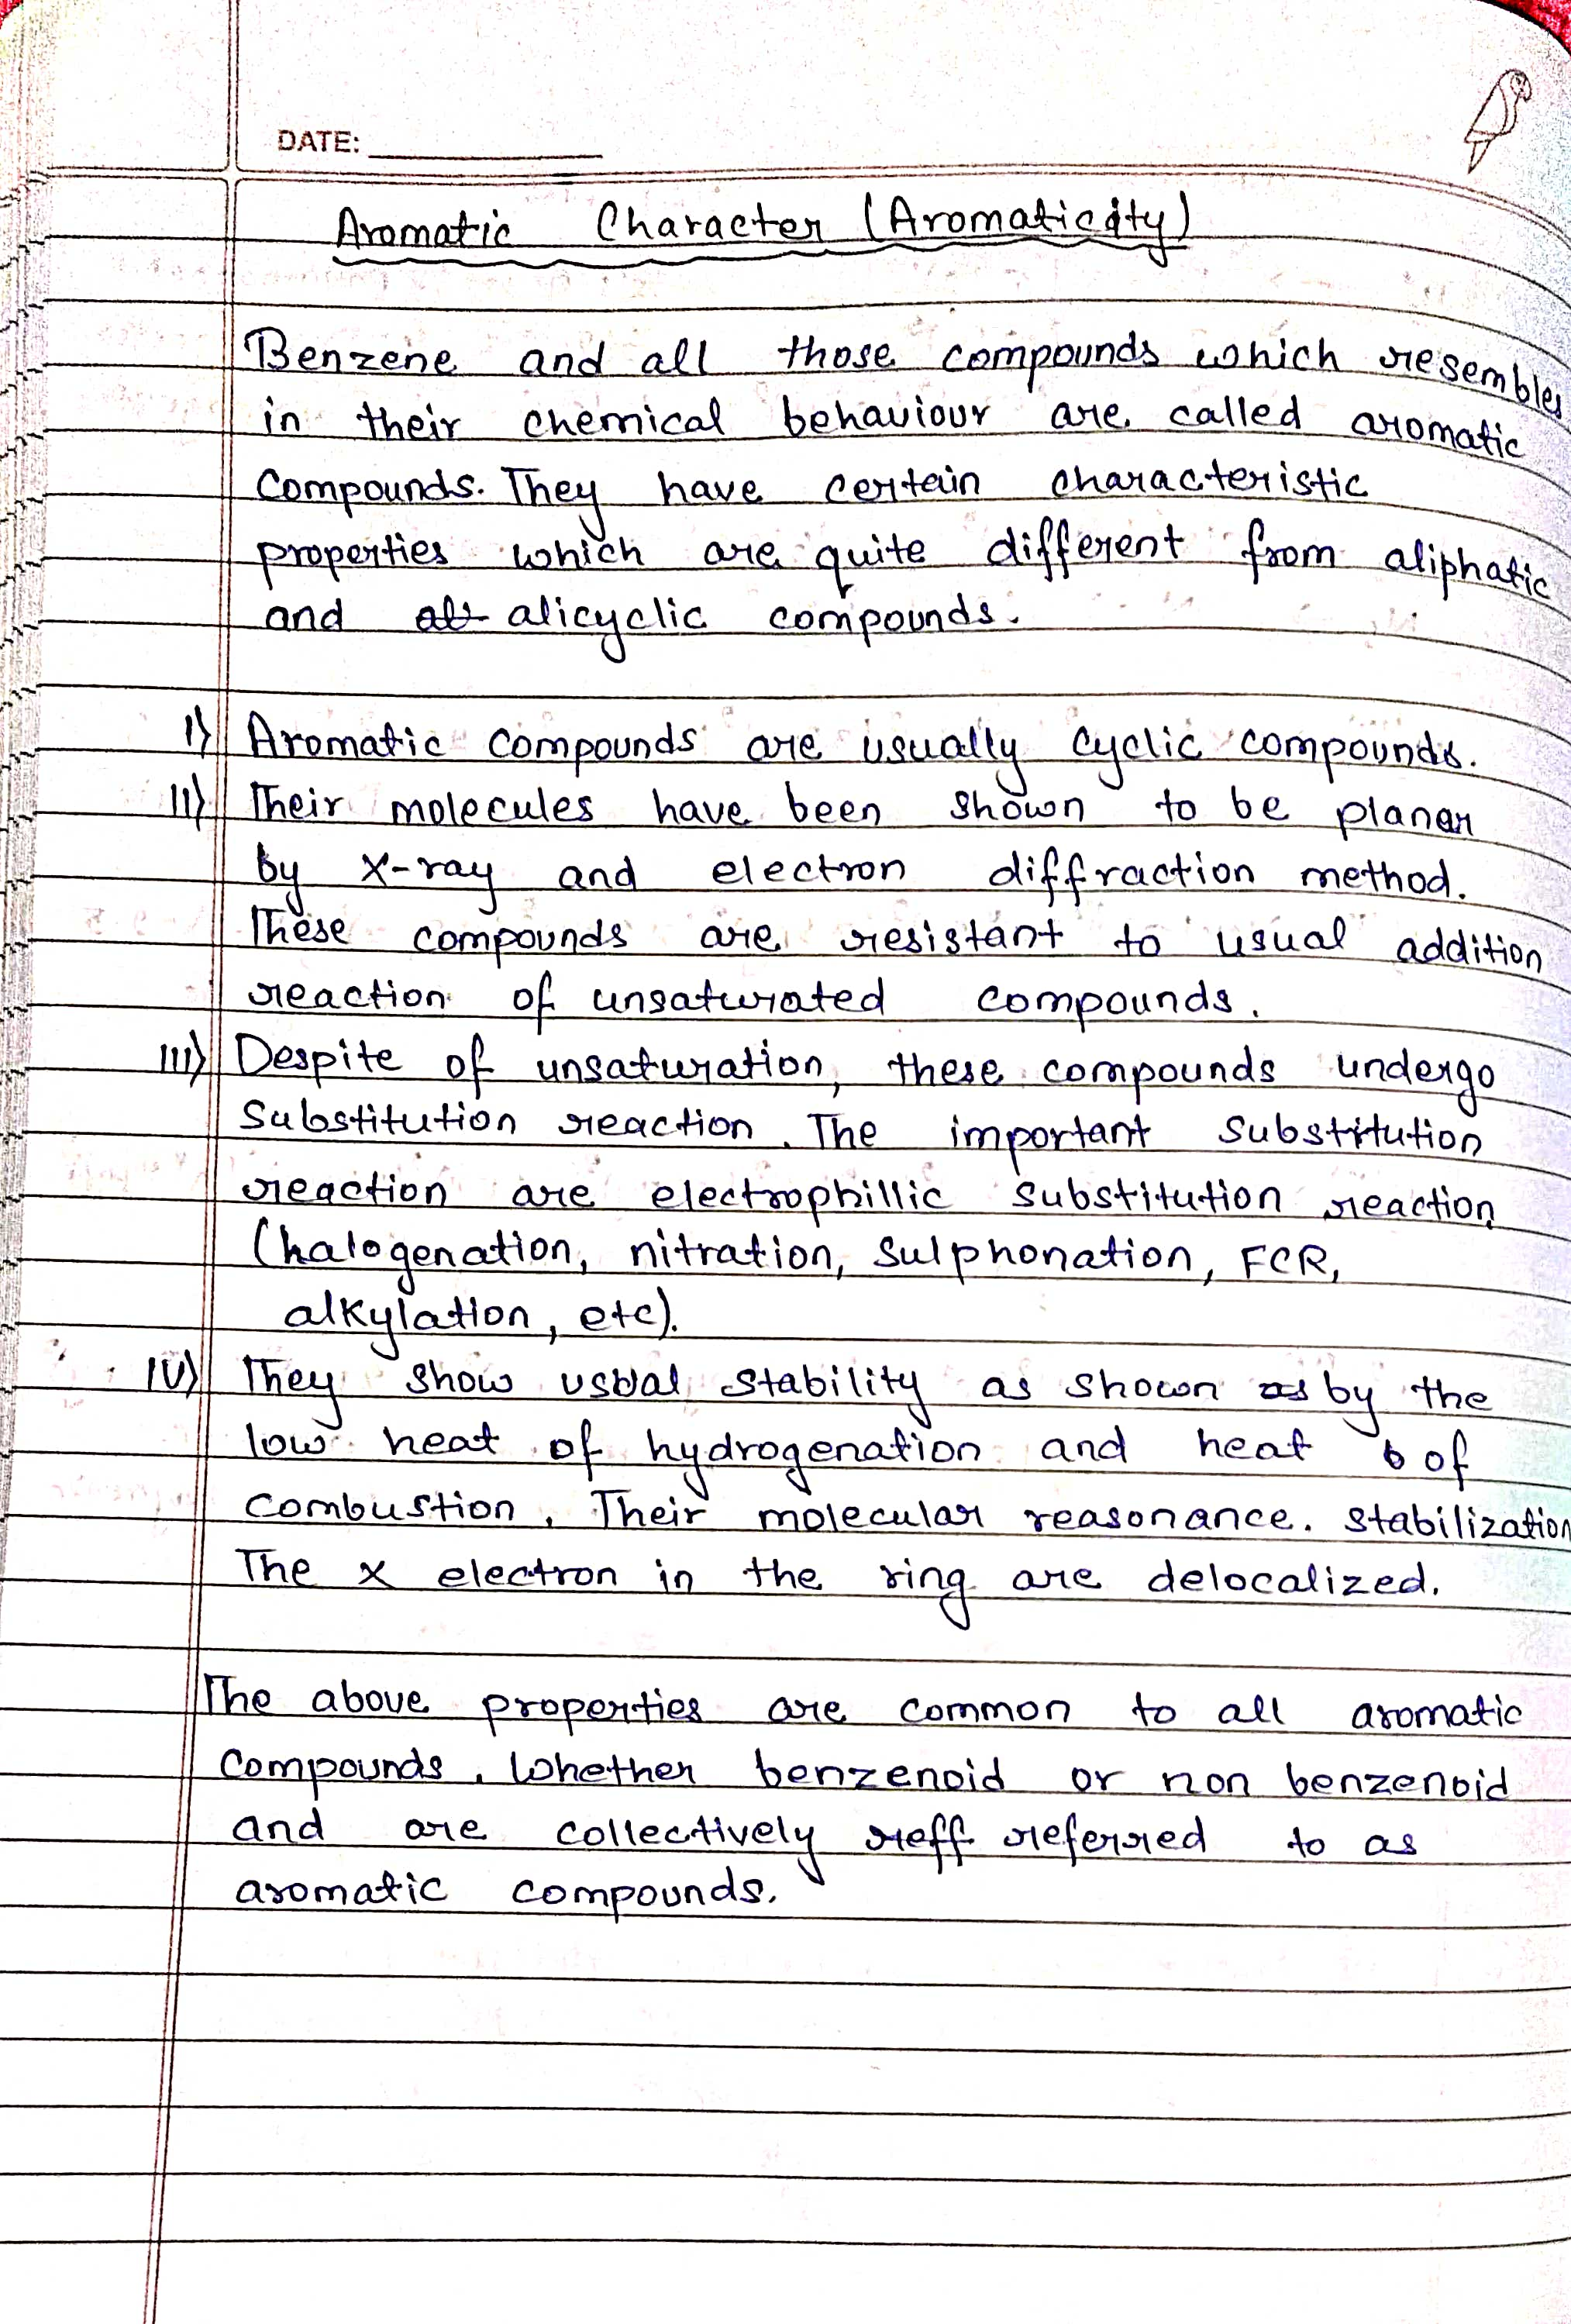 DATE:
Aromatic Character (Aromaticity)
Benzene and all those compounds which resembles
in their chemical behaviour are called aromatic
compounds. They have certain characteristic
properties which are quite different from aliphatic
and alicyclic compounds.
I) Aromatic compounds are usually cyclic compounds.
II) Their molecules have been shown to be planar
by x-ray and electron diffraction method.
These compounds are resistant to usual addition
reaction of unsaturated compounds.
III) Despite of unsaturation, these compounds undergo
substitution reaction. The important substitution
reaction are electrophillic substitution reaction
(halogenation, nitration, sulphonation, FCR,
alkylation, etc).
IV) They show usual stability as shown by the
low heat of hydrogenation and heat of
combustion. Their molecular reasonance. stabilization
The x electron in the ring are delocalized.
The above properties are common to all aromatic
compounds. Whether benzenoid or non benzenoid
and are collectively reff referred to as
aromatic compounds.